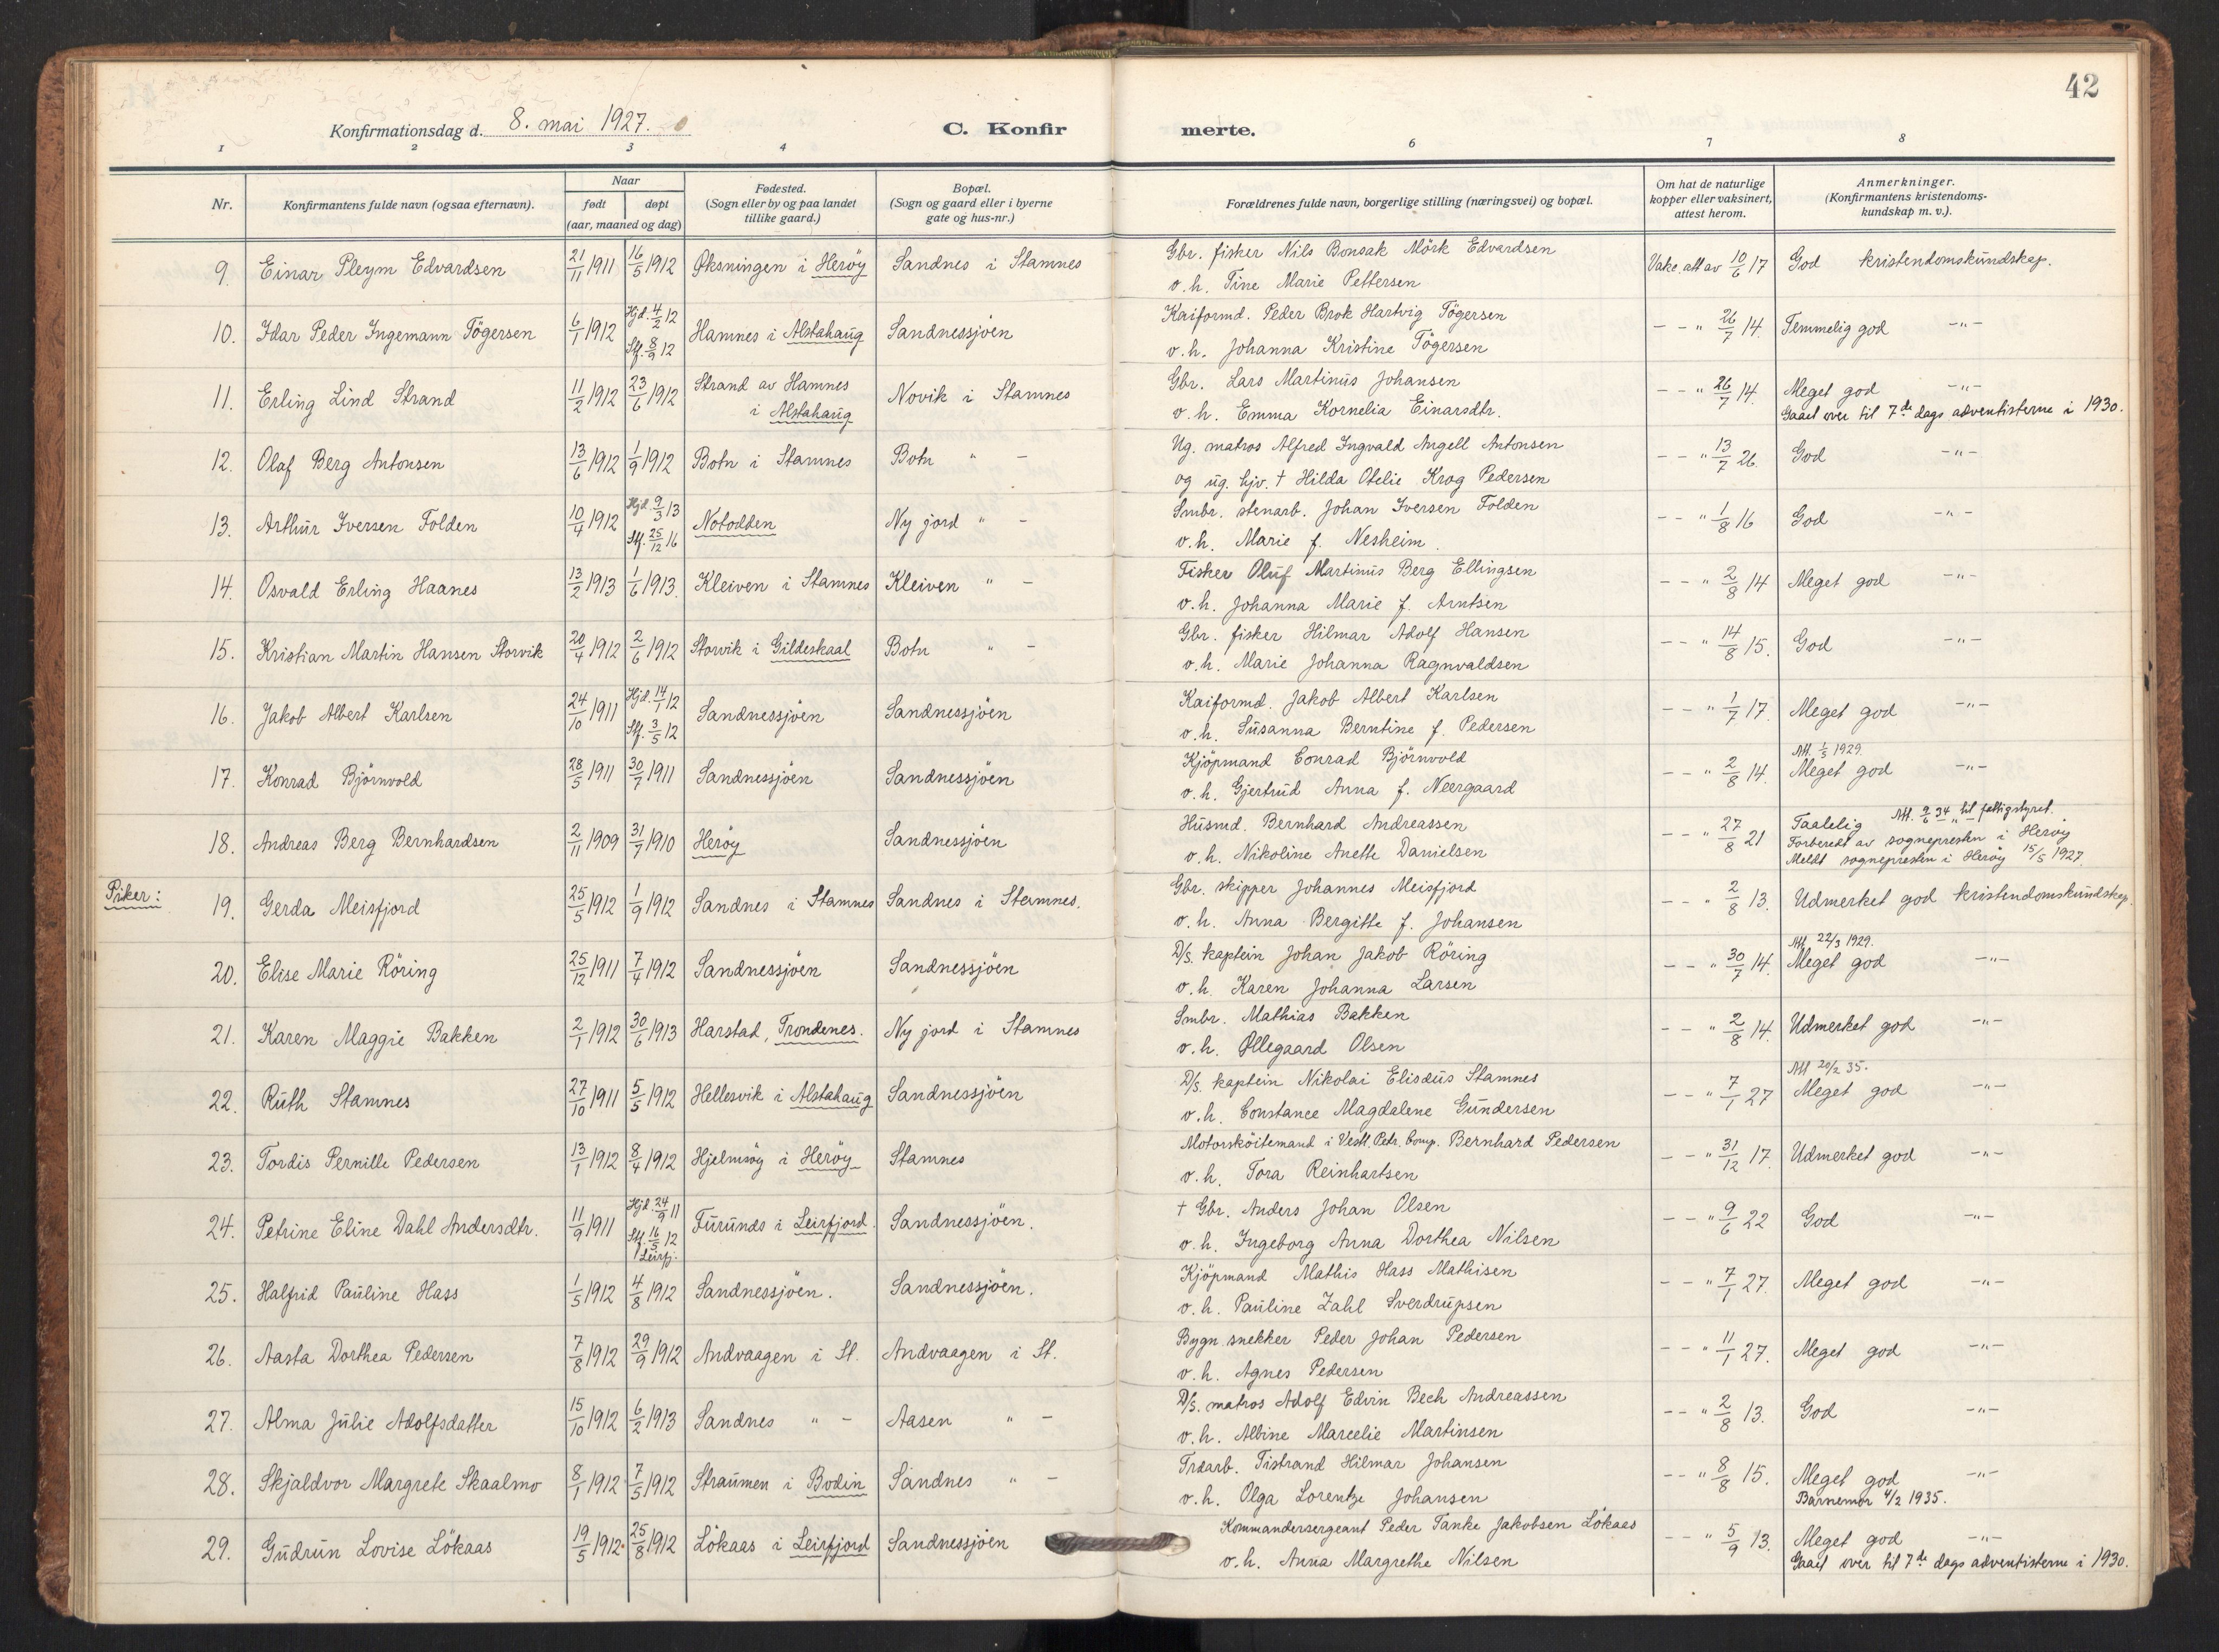 42
Konfirmationsdag d. 8. mai 1927.
C. Konfir merte.
1 2 3 4 6 7 8
Nr.
Konfirmantens fulde navn (ogsaa efternavn).
Naar
født døpt
(aar, maaned og dag)
Fødested.
(Sogn eller by og paa landet
tillike gaard.)
Bopæl.
(Sogn og gaard eller i byerne
gate og hus-nr.)
Forældrenes fulde navn, borgerlige stilling (næringsvei) og bopæl.
Om hat de naturlige
kopper eller vaksinert,
attest herom.
Anmerkninger.
(Konfirmantens kristendoms-
kundskap m. v.).
9. Einar Pleym Edvardsen 21/11 1911 16/5 1912 Øksningen i Herøy Sandnes i Stamnes Gbr. fisker Nils Bonsak Mörk Edvardsen Vakc. att av 10/6 17 God kristendomskundskap.
o. h. Tine Marie Pettersen
10. Idar Peder Ingemann Tögersen 6/1 1912 Hjd. 4/2 12 Stf. 8/9 12 Hamnes i Alstahaug Sandnessjöen Kaiformd. Peder Brok Hartvig Tögersen - - " 26/7 14. Temmelig god -"-
o. h. Johanna Kristine Tögersen
11. Erling Lind Strand 11/2 1912 23/6 1912 Strand av Hamnes i Alstahaug Novik i Stamnes Gbr. Lars Martinus Johansen - - " 26/7 14. Meget god -"-
o. h. Emma Kornelia Einarsdtr. Gaaet over til 7de dags adventisterne i 1930.
12. Olaf Berg Antonsen 13/6 1912 1/9 1912 Botn i Stamnes Botn " - Ug. matros Alfred Ingvald Angell Antonsen - - " 13/7 26. God -"-
og ug. hjv. † Hilda Otelie Krog Pedersen
13. Arthur Iversen Folden 10/4 1912 Hjd. 9/3 13 Stf. 25/12 16 Notodden Ny jord " - Smbr. stenarb. Johan Iversen Folden - - " 1/8 16 God -"-
o. h. Marie f. Nesheim.
14. Osvald Erling Haanes 13/2 1913 1/6 1913. Kleiven i Stamnes Kleiven " - Fisker Oluf Martinus Berg Ellingsen - - " 2/8 14 Meget god -"-
o. h. Johanna Marie f. Arntsen
15. Kristian Martin Hansen Storvik 20/4 1912 2/6 1912 Storvik i Gildeskaal Botn " - Gbr. fisker Hilmar Adolf Hansen - - " 14/8 15. God -"-
o. h. Marie Johanna Ragnvaldsen
16. Jakob Albert Karlsen 24/10 1911 Hjd. 14/1 12 Stf. 3/5 12 Sandnessjöen Sandnessjöen Kaiformd. Jakob Albert Karlsen - - " 1/7 17. Meget god -"-
o. h. Susanna Berntine f. Pedersen
17. Konrad Björnvold 28/5 1911 30/7 1911 Sandnessjöen Sandnessjöen Kjöpmand Conrad Björnvold - - " 2/8 14. Att. 1/5 1929. Meget god -"-
o. h. Gjertrud Anna f. Neergaard
18. Andreas Berg Bernhardsen 2/11 1909 31/7 1910 Herøy Sandnessjöen Husmd. Bernhard Andreassen - - " 27/8 21 Taalelig Att. 9/6 34 til fattigstyret.
o. h. Nikoline Anette Danielsen Forberedt av sognepresten i Herøy
Meldt sognepresten i Herøy 15/5 1927.
Piker:
19. Gerda Meisfjord 25/5 1912 1/9 1912 Sandnes i Stamnes Sandnes i Stamnes. Gbr. skipper Johannes Meisfjord - - " 2/8 13. Udmerket god kristendomskundskap.
o. h. Anna Bergitte f. Johansen
20. Elise Marie Röring 25/12 1911 7/4 1912 Sandnessjöen Sandnessjöen D/s. kaptein Johan Jakob Röring - - " 30/7 14. Att. 22/3 1929. Meget god -"-
o. h. Karen Johanna Larsen
21. Karen Maggie Bakken 2/1 1912 30/6 1913 Harstad, Trondenes. Ny jord i Stamnes Smbr. Mathias Bakken - - " 2/8 14. Udmerket god -"-
o. h. Øllegaard Olsen
22. Ruth Stamnes 27/10 1911 5/5 1912 Hellesvik i Alstahaug Sandnessjöen D/s. kaptein Nikolai Elisæus Stamnes - - " 7/1 27 Att 20/2 35. Meget god -"-
o. h. Constance Magdalene Gundersen
23. Tordis Pernille Pedersen 13/1 1912 8/4 1912 Hjelmsöy i Herøy Stamnes Motorsköitemand i Vestl. Petr. Comp. Bernhard Pedersen - - " 31/12 17. Udmerket god -"-
o. h. Tora Reinhartsen
24. Petrine Eline Dahl Andersdtr. 11/9 1911 Hjd. 24/9 11 Stf. 16/5 12 Leirfj. Furunes i Leirfjord. Sandnessjöen. † Gbr. Anders Johan Olsen - - " 9/6 22 God -"-
o. h. Ingeborg Anna Dorthea Nilsen
25. Halfrid Pauline Hass 1/5 1912 4/8 1912 Sandnessjöen. Sandnessjöen. Kjöpmand Mathis Hass Mathisen - - " 7/1 27. Meget god -"-
o. h. Pauline Zahl Sverdrupsen
26. Aasta Dorthea Pedersen 7/8 1912 29/9 1912 Andvaagen i St. Andvaagen i St. Bygn. snekker Peder Johan Pedersen - - " 11/1 27. Meget god -"-
o. h. Agnes Pedersen
27. Alma Julie Adolfsdatter 15/10 1912 6/2 1913 Sandnes " - Aasen " - D/s. matros Adolf Edvin Bech Andreassen - - " 2/8 13. God -"-
o. h. Albine Marcelie Martinsen
28. Skjaldvor Margrete Skaalmo 8/1 1912 7/5 1912 Straumen i Bodin Sandnes " - Træarb. Tistrand Hilmar Johansen - - " 8/8 15. Meget god -"-
o. h. Olga Lorentze Johansen Barnemor 4/2 1935.
29. Gudrun Lovise Lökaas 19/5 1912 25/8 1912 Lökaas i Leirfjord Sandnessjöen Kommandersergeant Peder Tanke Jakobsen Lökaas - - " 5/9 13. Meget god -"-
o. h. Anna Margrethe Nilsen Gaaet over til 7de dags adventisterne i 1930.